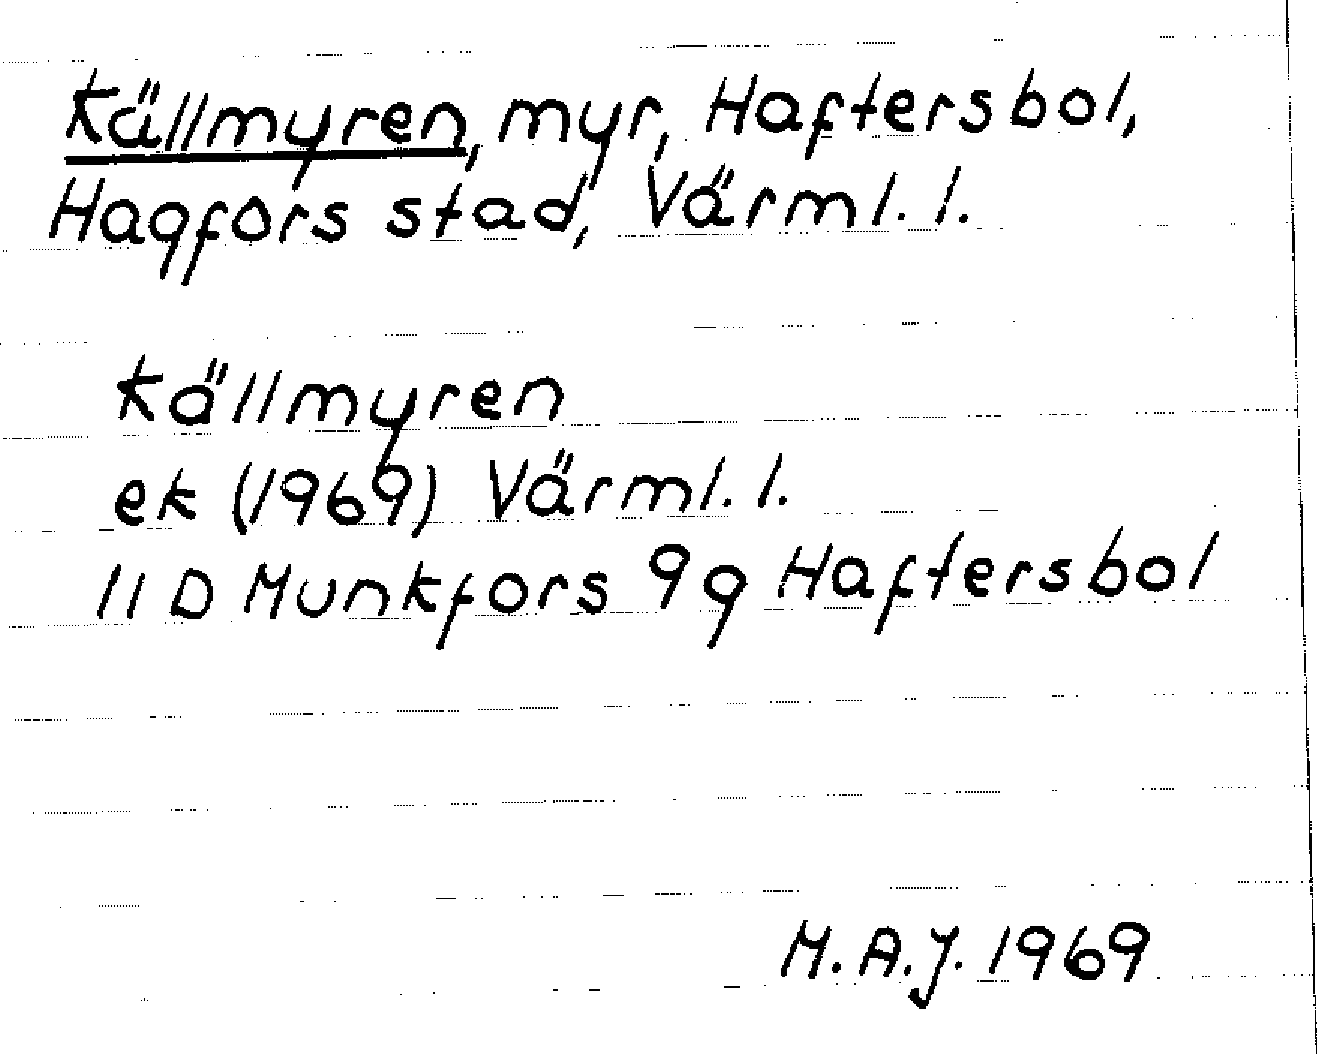 Källmyren, myr, Haftersbol,
Hagfors stad, Värml. l.
Källmyren
ek (1969) Värml. l.
11 D Munkfors 9 g Haftersbol
M. A. J. 1969